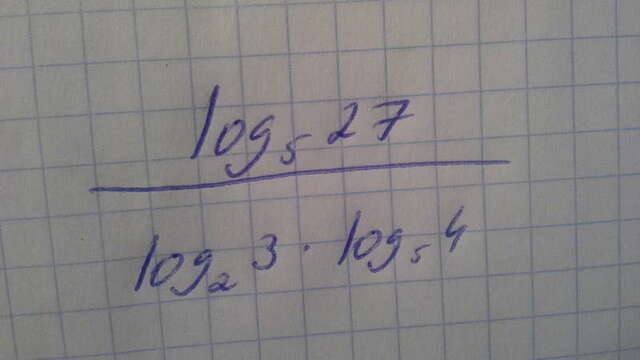 log₅ 27
log₂ 3 · log₅ 4